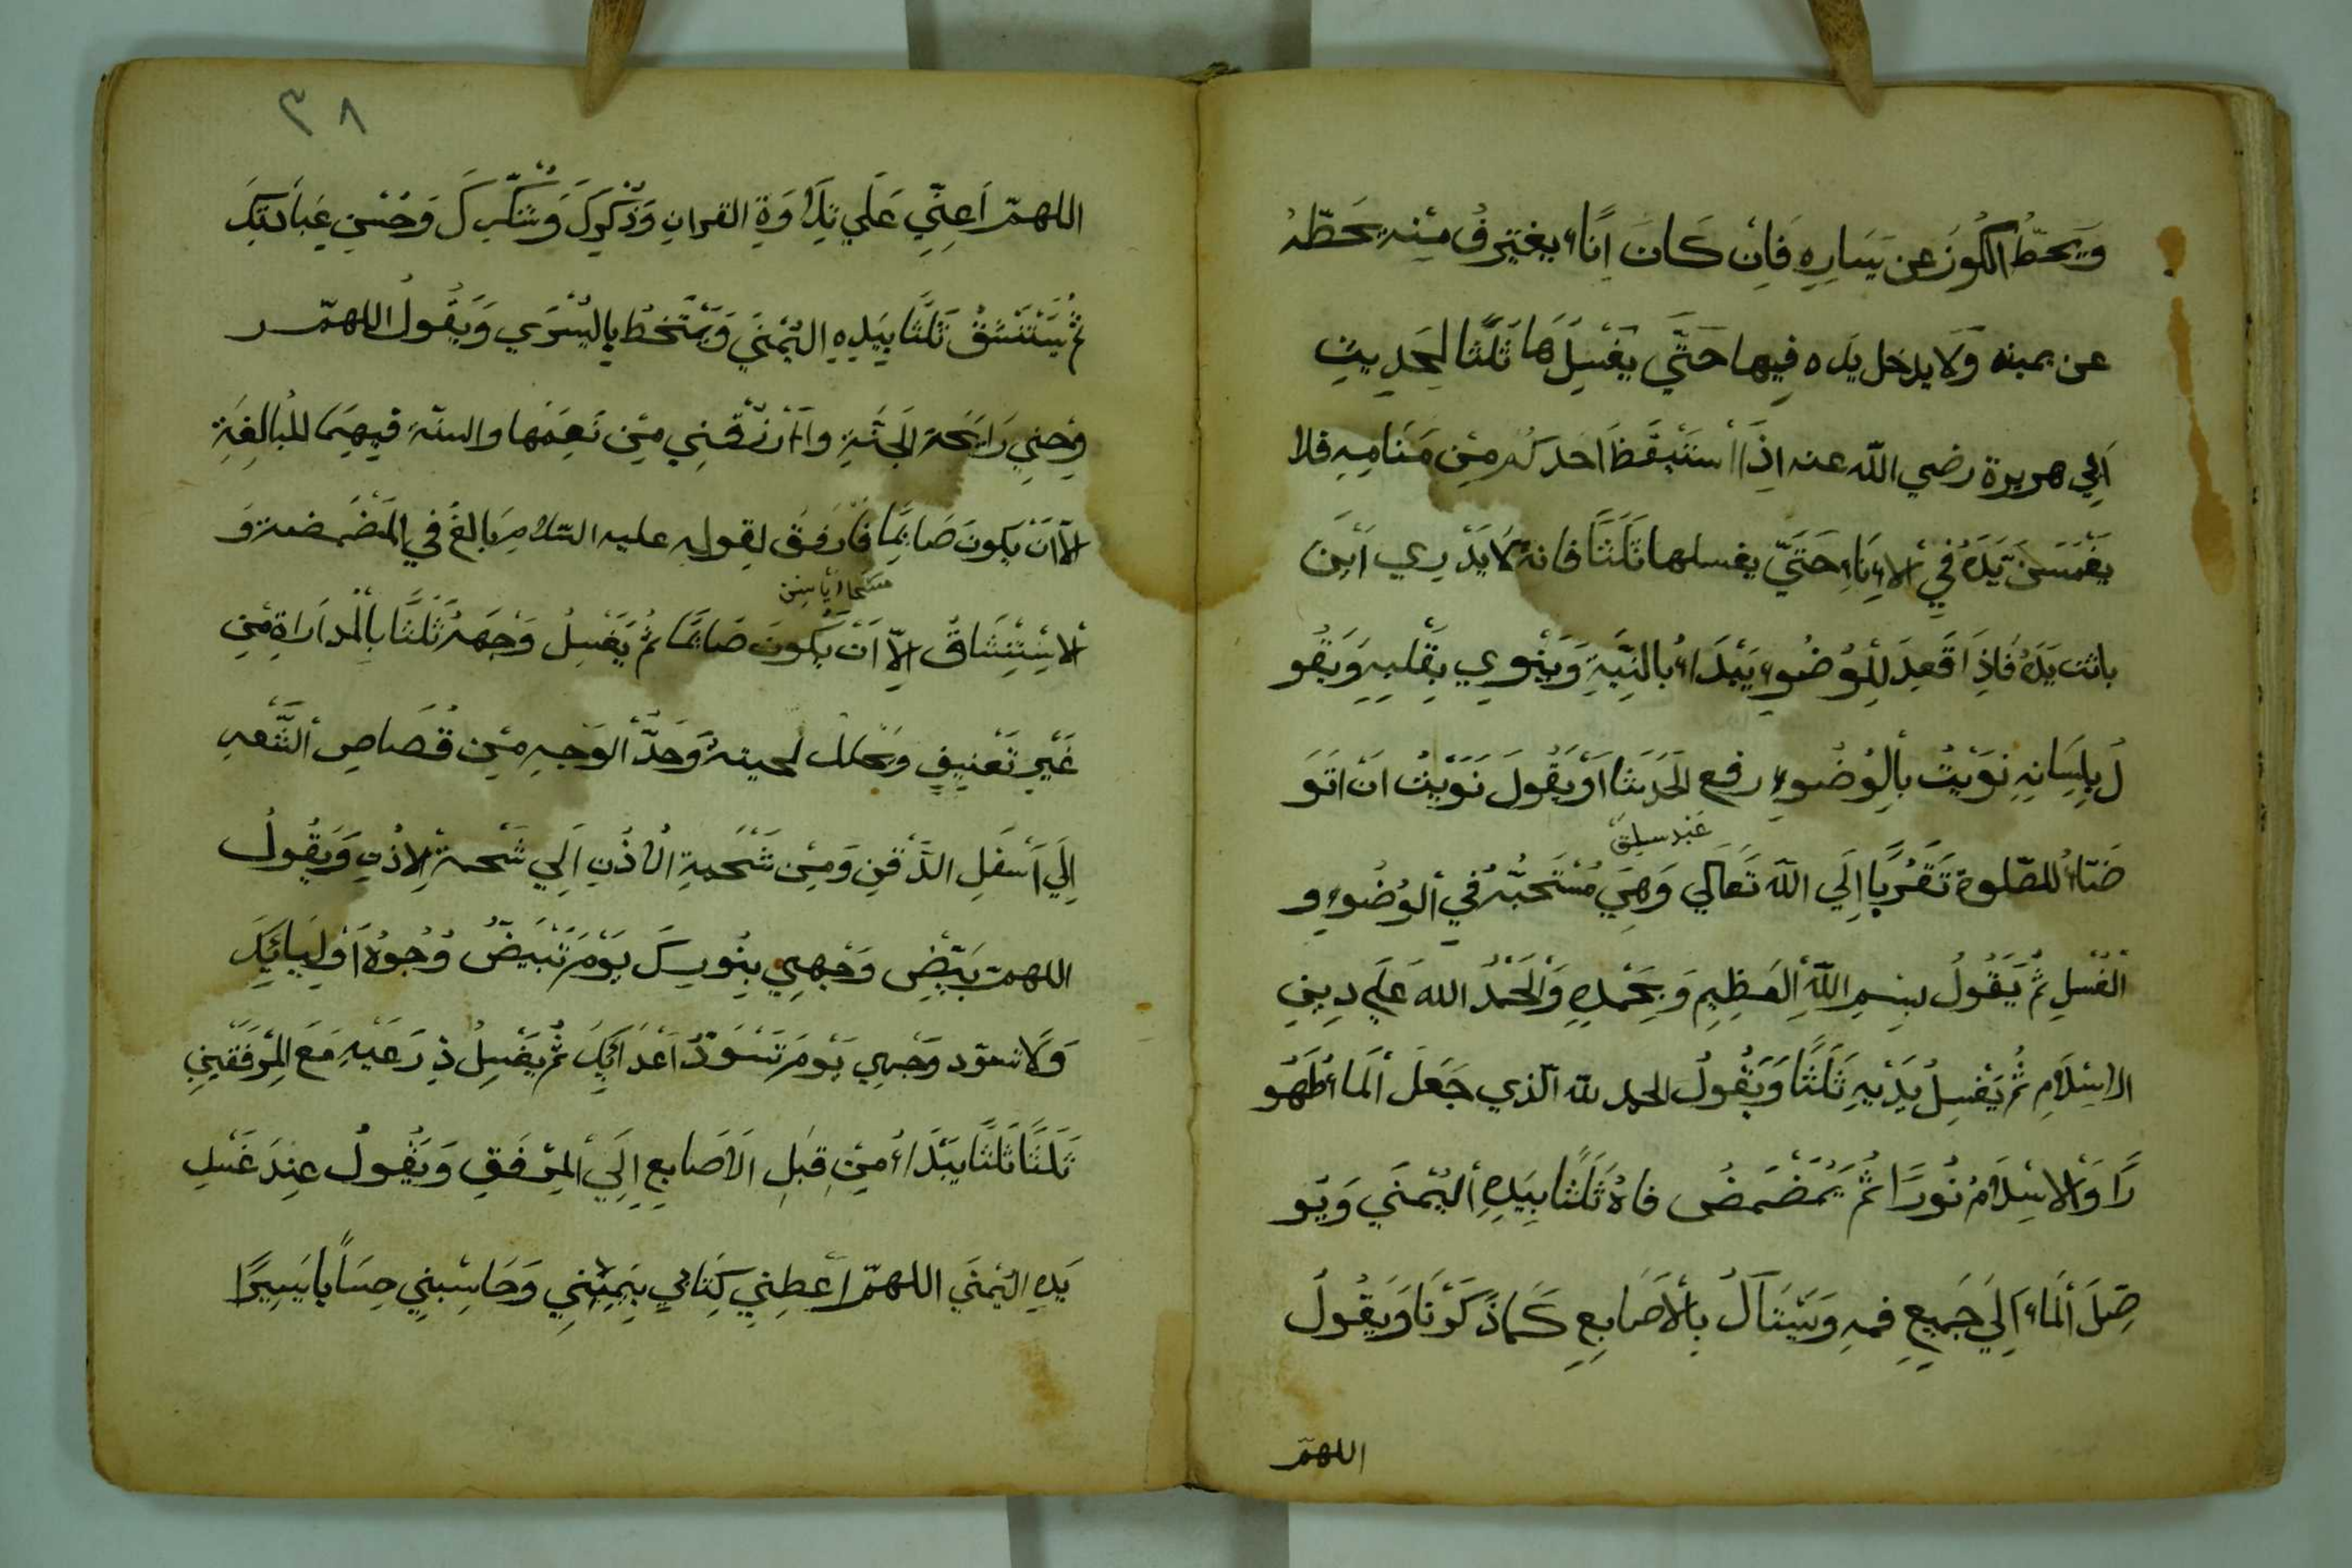 وَيَحطُّ الكُوزَ عن يَسَارِهِ فَاِنْ كَانَ اِنَاء يغترِفُ مِنْه يَحَطّهُ
عن يمينه وَلَا يدخل يَده فِيها حَتَّي يَغْسِلَهَا ثَلَثًا لِحَدِيثِ
اَبِي هريرة رضي اللّه عنه اِذَا اسْتَيْقَظَ احَدكُم مِنْ مَنَامِهِ فلا
يَغْمِسَنَّ يَدَهُ فِي الاِنَاءِ حَتَّيّ يغسلها ثَلَثًا فانهُ لَا يَدْرِي اَيْنَ
باتت يَدَهُ فَاِذَا قَعَدَ لِلْوُضُوءِ يَبْدَاءُ بالنِيَّةِ وَيَنْوِي بِقَلْبِهِ وَيَقُو
لُ بِلِسَانِهِ نَوَيْتُ بِالْوُضُوءِ رفع الْحَدَثا اَوْ يَقُولَ نَوَيْتُ اَنْ اَتَوَ
ضَّاءُ للصّلوة تَقَرُّبًا اِلَي اللّه تَعَالَي وَهِيَ مُسْتَحَبَّةٌ فِي الْوُضُوءِ و
الْغُسْلِ ثُمَّ يَقُولُ بِسْمِ اللّهِ الْعَظِيمِ وَبِحَمْدِهِ وَالْحَمْدُ اللّه عَلَي دِينِ
الاسْلَامِ ثُمَّ يَغْسِلُ يَدَيْهِ ثَلَثًا وَيَقُولُ الحمد للّه الّذي جَعَلَ الْمَاء طَهُو
رًا وَالْاِسْلَامَ نُورًا ثُمَّ يَمَضْمَضُ فاهُ ثَلَثًا بِيَدِهِ الْيُمْنَي وَيُو
صِلَ الْمَاء اِلَي جَمِيعِ فمه وَيَنَالُ بِالْاَصَابِعِ كَمَا ذَكَرْنَا وَيَقُولُ
اللهمّ
٣٨
اللهمّ اَعِنِّي عَلَي تِلَاوَةِ القران وَذِكْرِكَ وَشُكْرِكَ وَحُسْنِ عِبَادَتِكَ
ثُمَّ يَسْتَنْشِقُ ثَلَثًا بِيَدِهِ الْيُمْنَي وَيَمْتَخِطُ بِالْيُسْرَي وَيَقُولُ اللهمّ
رَايَحَة الْجَنَّةِ وَارْزُقْنِي مِنْ نَعِمَهَا والسنّة فِيهِمَا الْمُبَالَغَة
الّا اَنْ يَكُونَ صَايَمًا فَارْفَقَ لِقولِه عليه السّلام بَالِغْ فِي الْمَضْمَضة وَ
الْاسْتِنْشَاق اِلّا اَنْ يَكُونَ صَايَمًا ثُمَّ يَغْسِلُ وَجْهَهُ ثَلَثًا بِالْمُدَارَاةِ مِنْ
غَيْرِ تَعْنِيفٍ وَيخلل لحيته وَحَدُّ الْوَجْهِ مِنْ قُصَاصِ الشَّعَرِ
اِلَي اَسْفَلِ الذَّقَنِ وَمِنْ شَحْمَةِ الْاُذُنِ اِلَي شَحمَة الاذُنِ وَيَقُولُ
اللهمّ بَيِّضْ وَجْهِي بِنُورِكَ يَوْمَ تَبْيَضُّ وُجُوهُ اَوْلِيَائِكَ
وَلَا تسوّد وَجْهِي يَوْمَ تَسْوَدُّ اَعْدَائِكَ ثُمَّ يَغْسِلُ ذِرَعَيْهِ مَعَ الْمِرْفَقَيْنِ
ثَلَثًا ثَلَثًا يَبْدَاءُ مِنْ قِبَلِ الْاَصَابِعِ اِلَي الْمِرْفَقِ وَيَقُولُ عِنْدَ غَسْلِ
يَدِهِ الْيُمْنَي اللهمّ اَعْطِنِي كِتَابِي بِيَمِيْنِي وَحَاسِبْنِي حِسَابًا يَسِيرًا